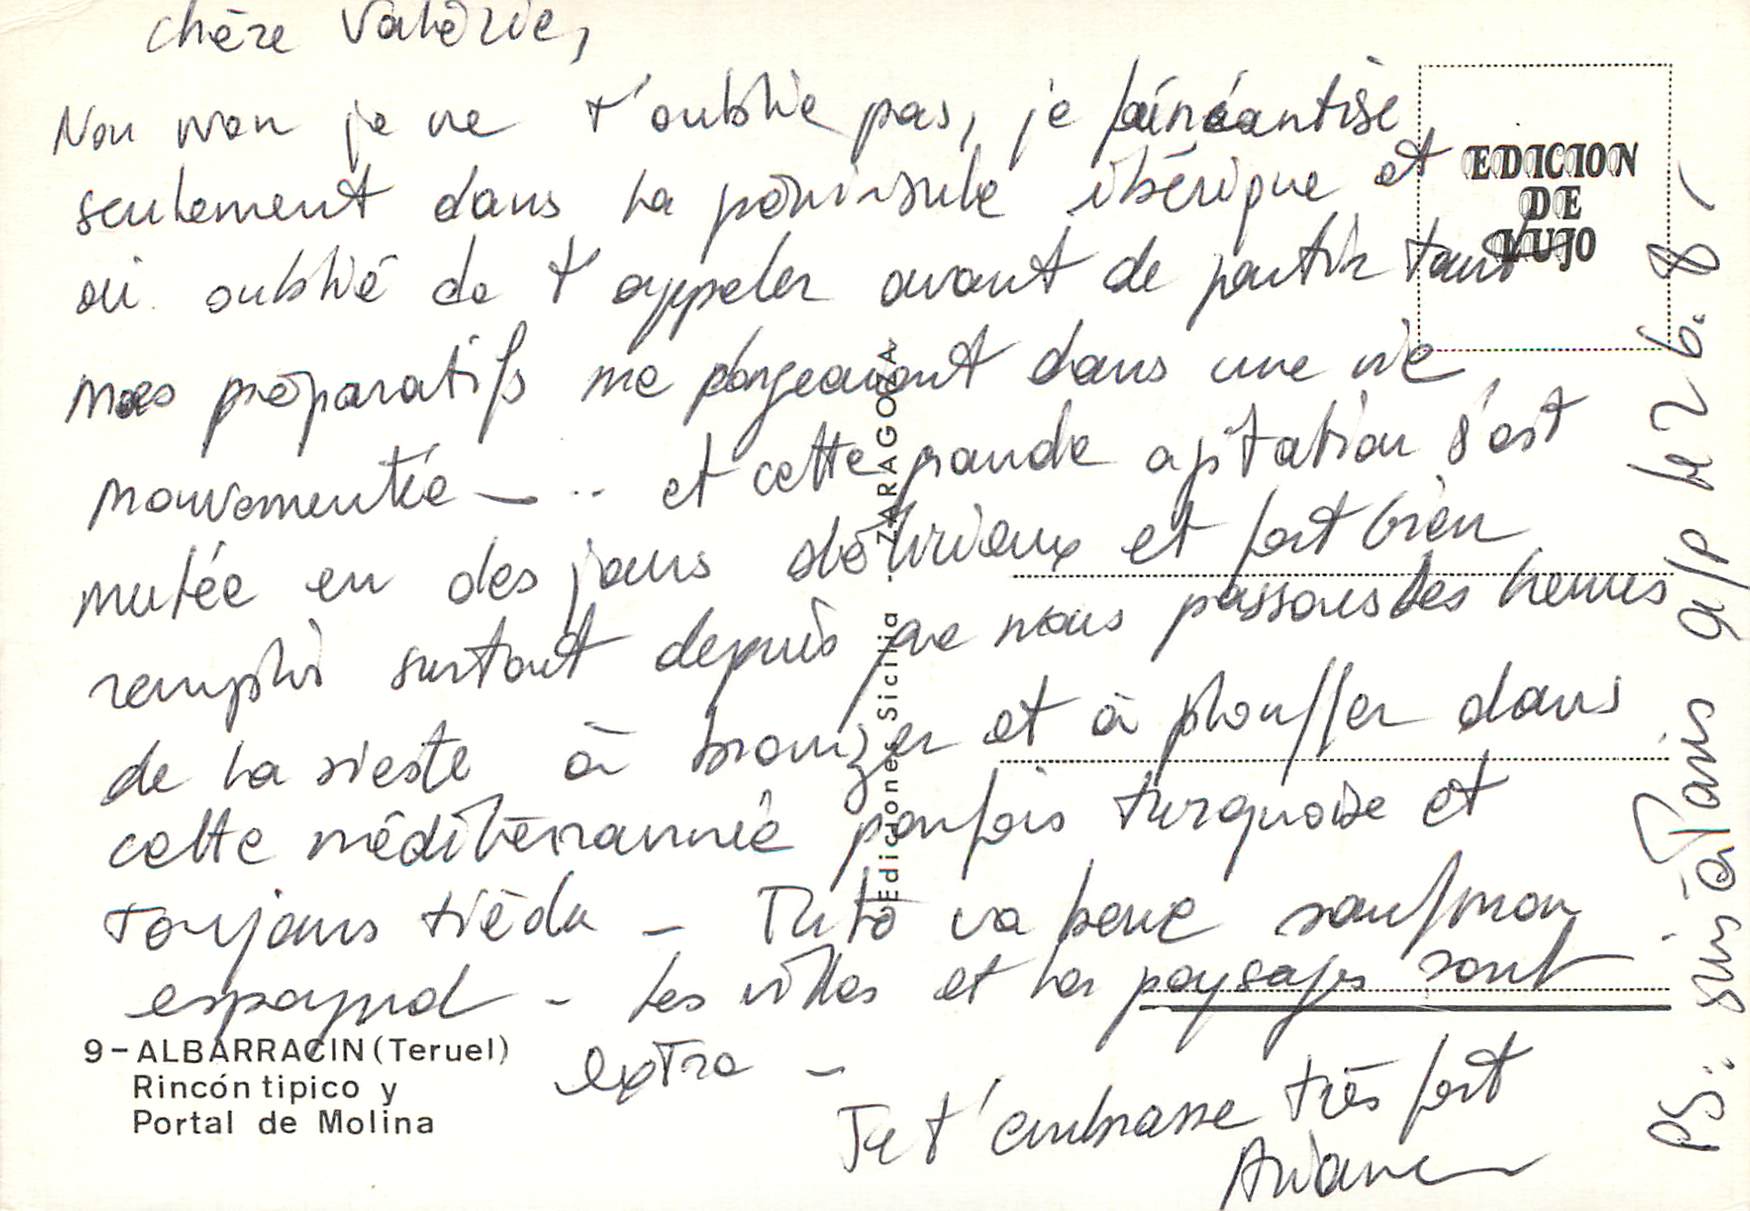 chère Valérie,
Non non je ne t'oublie pas, je fainéantise
seulement dans la péninsule ibérique et
ai oublié de t'appeler avant de partir tant
mes préparatifs me plongeaient dans une vie
mouvementée — .. et cette grande agitation s'est
mutée en des jours délirieux et fort bien
rempli surtout depuis que nous passons les heures
de la sieste à bronzer et à plouffer dans
cette méditerrannée parfois turquoise et
toujours tiède — Tuto va bene sauf mon
espagnol - Les villes et les paysages sont
extra —
Je t'embrasse très fort
Ariane
PS: suis à Paris a/p le 26.8
EDICION
DE
LUJO
Ediciones Sicilia - ZARAGOZA
9-ALBARRACIN (Teruel)
Rincón tipico y
Portal de Molina